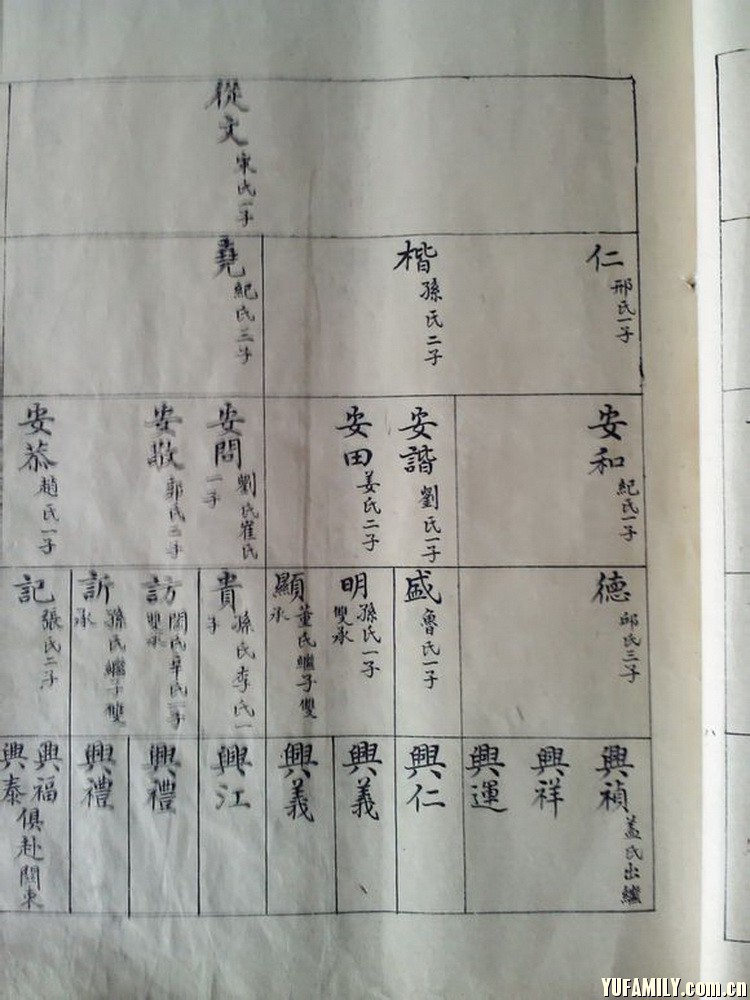 從文 宋氏一子
仁 邢氏一子
楷 孫氏二子
堯 紀氏三子
安和 紀氏一子
安諧 劉氏一子
安田 姜氏二子
安問 劉氏崔氏一子
安敬 郭氏二子
安恭 趙氏一子
德 邱氏三子
盛 魯氏一子
明 孫氏一子雙承
顯 董氏繼子雙承
貴 孫氏李氏一子
訪 閆氏辛氏一子雙承
訢 孫氏繼子雙承
記 張氏二子
興禎 蓋氏出繼
興祥
興運
興仁
興義
興義
興江
興禮
興禮
興福
興泰
俱赴關東
YUFAMILY.com.cn